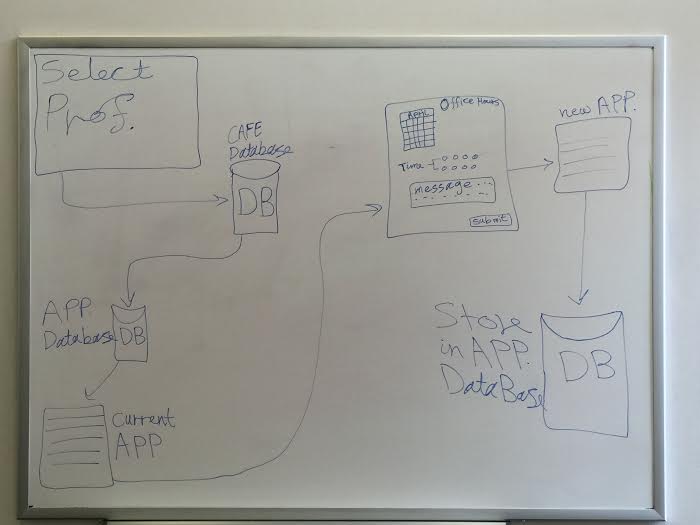 Select
Prof.
CAFE
Database
DB
APP.
Database
DB
current
APP
Office Hours
APRIL
Time
message...
submit
new APP.
Store
in APP.
DataBase
DB